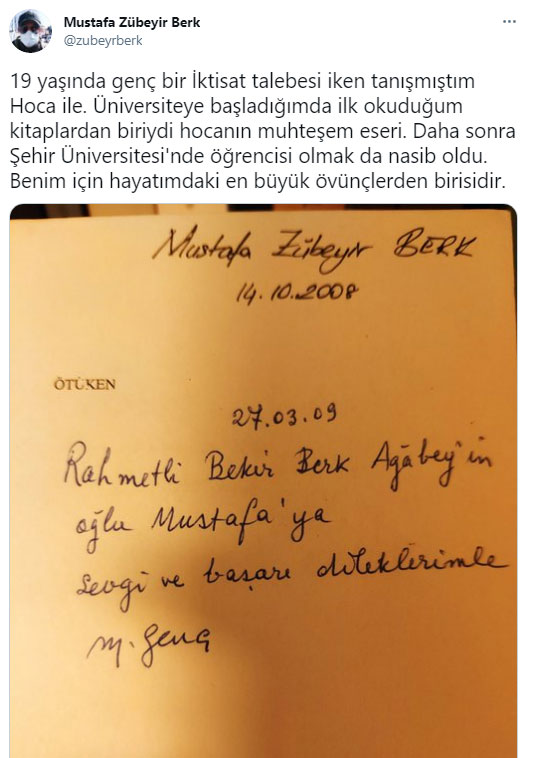 Mustafa Zübeyir Berk
@zubeyrberk
19 yaşında genç bir İktisat talebesi iken tanışmıştım
Hoca ile. Üniversiteye başladığımda ilk okuduğum
kitaplardan biriydi hocanın muhteşem eseri. Daha sonra
Şehir Üniversitesi'nde öğrencisi olmak da nasib oldu.
Benim için hayatımdaki en büyük övünçlerden birisidir.
Mustafa Zübeyir BERK
14.10.2008
ÖTÜKEN
27.03.09
Rahmetli Bekir Berk Ağabey'in
oğlu Mustafa'ya
sevgi ve başarı dileklerimle
M. Genç